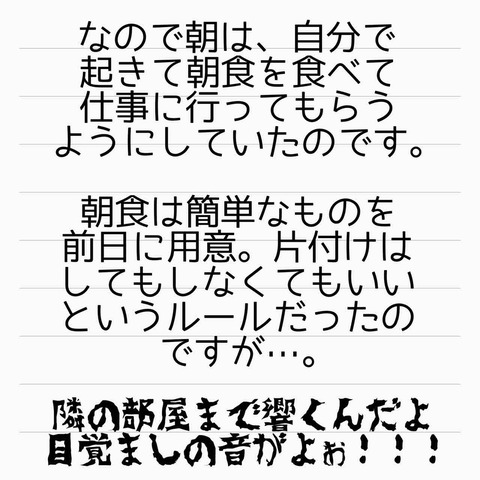 なので朝は、自分で
起きて朝食を食べて
仕事に行ってもらう
ようにしていたのです。
朝食は簡単なものを
前日に用意。片付けは
してもしなくてもいい
というルールだったの
ですが…。
隣の部屋まで響くんだよ
目覚ましの音がよぉ！！！